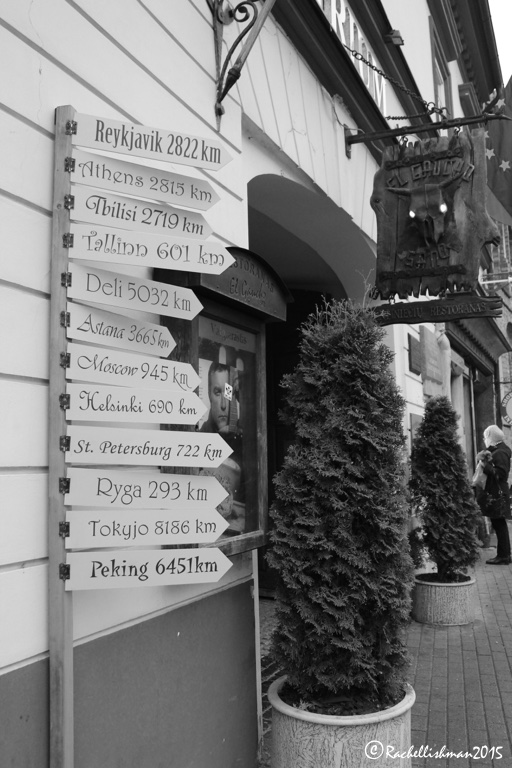 Reykjavik 2822 km
Athens 2815 km
Tbilisi 2719 km
Tallinn 601 km
Deli 5032 km
Astana 3665 km
Moscow 945 km
Helsinki 690 km
St. Petersburg 722 km
Ryga 293 km
Tokyjo 8186 km
Peking 6451km
EL GAUCHO
SANO
RESTORANAS
El Gaucho
©Rachellishman2015